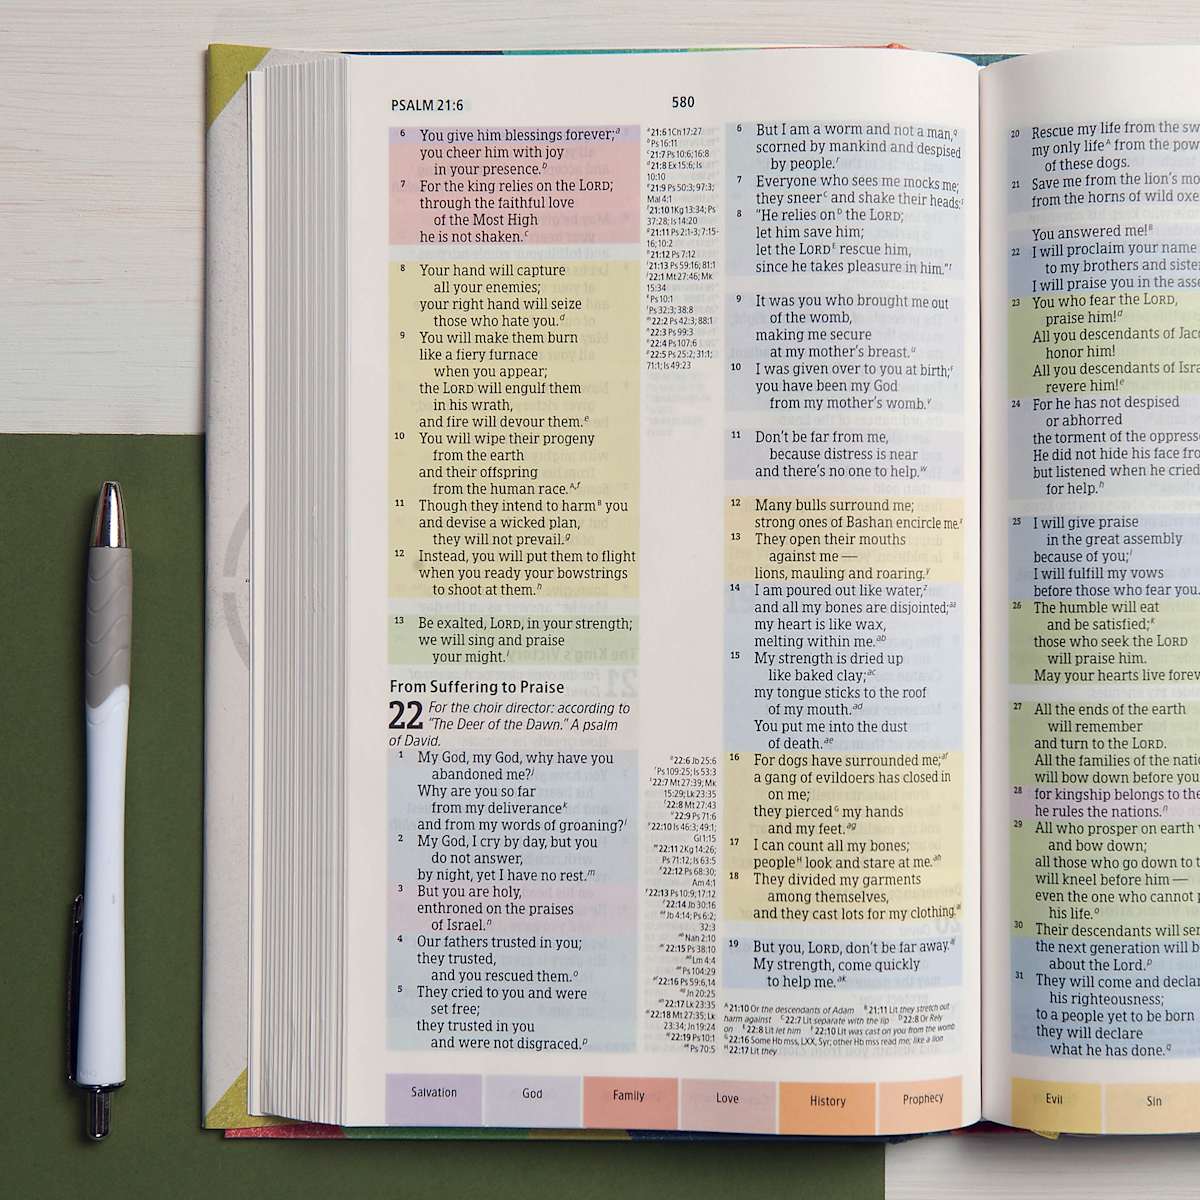 PSALM 21:6
580
6 You give him blessings forever;a
you cheer him with joy
in your presence.b
7 For the king relies on the LORD;
through the faithful love
of the Most High
he is not shaken.c
8 Your hand will capture
all your enemies;
your right hand will seize
those who hate you.d
9 You will make them burn
like a fiery furnace
when you appear;
the LORD will engulf them
in his wrath,
and fire will devour them.e
10 You will wipe their progeny
from the earth
and their offspring
from the human race.A,f
11 Though they intend to harmB you
and devise a wicked plan,
they will not prevail.g
12 Instead, you will put them to flight
when you ready your bowstrings
to shoot at them.h
13 Be exalted, LORD, in your strength;
we will sing and praise
your might.i
From Suffering to Praise
22 For the choir director: according to
"The Deer of the Dawn." A psalm
of David.
1 My God, my God, why have you
abandoned me?j
Why are you so far
from my deliverancek
and from my words of groaning?l
2 My God, I cry by day, but you
do not answer,
by night, yet I have no rest.m
3 But you are holy,
enthroned on the praises
of Israel.n
4 Our fathers trusted in you;
they trusted,
and you rescued them.o
5 They cried to you and were
set free;
they trusted in you
and were not disgraced.p
a21:6 1Ch 17:27
bPs 16:11
c21:7 Ps 10:6; 16:8
d21:8 Ex 15:6; Is
10:10
e21:9 Ps 50:3; 97:3;
Mal 4:1
f21:10 1Kg 13:34; Ps
37:28; Is 14:20
g21:11 Ps 2:1-3; 7:15-
16; 10:2
h21:12 Ps 7:12
i21:13 Ps 59:16; 81:1
j22:1 Mt 27:46; Mk
15:34
kPs 10:1
lPs 32:3; 38:8
m22:2 Ps 42:3; 88:1
n22:3 Ps 99:3
o22:4 Ps 107:6
p22:5 Ps 25:2; 31:1;
71:1; Is 49:23
q22:6 Jb 25:6
rPs 109:25; Is 53:3
s22:7 Mt 27:39; Mk
15:29; Lk 23:35
t22:8 Mt 27:43
u22:9 Ps 71:6
v22:10 Is 46:3; 49:1;
Gl 1:15
w22:11 2Kg 14:26;
Ps 71:12; Is 63:5
x22:12 Ps 68:30;
Am 4:1
y22:13 Ps 10:9; 17:12
z22:14 Jb 30:16
aaJb 4:14; Ps 6:2;
32:3
abNah 2:10
ac22:15 Ps 38:10
adLm 4:4
aePs 104:29
af22:16 Ps 59:6,14
agJn 20:25
ah22:17 Lk 23:35
ai22:18 Mt 27:35; Lk
23:34; Jn 19:24
aj22:19 Ps 10:1
akPs 70:5
6 But I am a worm and not a man,q
scorned by mankind and despised
by people.r
7 Everyone who sees me mocks me;
they sneerC and shake their heads:s
8 "He relies onD the LORD;
let him save him;
let the LORDE rescue him,
since he takes pleasure in him."t
9 It was you who brought me out
of the womb,
making me secure
at my mother's breast.u
10 I was given over to you at birth;F
you have been my God
from my mother's womb.v
11 Don't be far from me,
because distress is near
and there's no one to help.w
12 Many bulls surround me;
strong ones of Bashan encircle me.x
13 They open their mouths
against me —
lions, mauling and roaring.y
14 I am poured out like water,z
and all my bones are disjointed;aa
my heart is like wax,
melting within me.ab
15 My strength is dried up
like baked clay;ac
my tongue sticks to the roof
of my mouth.ad
You put me into the dust
of death.ae
16 For dogs have surrounded me;af
a gang of evildoers has closed in
on me;
they piercedG my hands
and my feet.ag
17 I can count all my bones;
peopleH look and stare at me.ah
18 They divided my garments
among themselves,
and they cast lots for my clothing.ai
19 But you, LORD, don't be far away.aj
My strength, come quickly
to help me.ak
A21:10 Or the descendants of Adam B21:11 Lit they stretch out
harm against C22:7 Lit separate with the lip D22:8 Or Rely
on E22:8 Lit let him F22:10 Lit was cast on you from the womb
G22:16 Some Hb mss, LXX, Syr; other Hb mss read me; like a lion
H22:17 Lit they
Salvation
God
Family
Love
History
Prophecy
20 Rescue my life from the
my only lifeA from the
of these dogs.
21 Save me from the lion's
from the horns of wild
You answered me!B
22 I will proclaim your name
to my brothers and
I will praise you in the
23 You who fear the LORD,
praise him!d
All you descendants of
honor him!
All you descendants of
revere him!e
24 For he has not despised
or abhorred
the torment of the
He did not hide his face
but listened when he cried
for help.h
25 I will give praise
in the great assembly
because of you;i
I will fulfill my vows
before those who fear you.
26 The humble will eat
and be satisfied;k
those who seek the LORD
will praise him.
May your hearts live
27 All the ends of the earth
will remember
and turn to the LORD.
All the families of the
will bow down before
28 for kingship belongs to
he rules the nations.n
29 All who prosper on earth
and bow down;
all those who go down to
will kneel before him —
even the one who cannot
his life.o
30 Their descendants will
the next generation will
about the Lord.p
31 They will come and
his righteousness;
to a people yet to be born
they will declare
what he has done.q
Evil
Sin